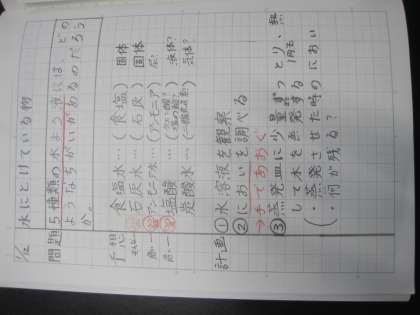 1/2 水にとけている物
問題 5種類の水よう液には、どの
ようなちがいがあるのだろう
か。
予想 食塩水…(食塩) 固体
石灰水…(石灰) 固体
アンモニア水…(アンモニア)
塩酸 液体?
炭酸水…(二酸化炭素) 気体?
計画 ①水溶液を観察
②においを調べる
→手であおぐ
③蒸発皿に少量ずつとり、熱
して水を蒸発する
(・蒸発させた時のにおい
・何が残る?